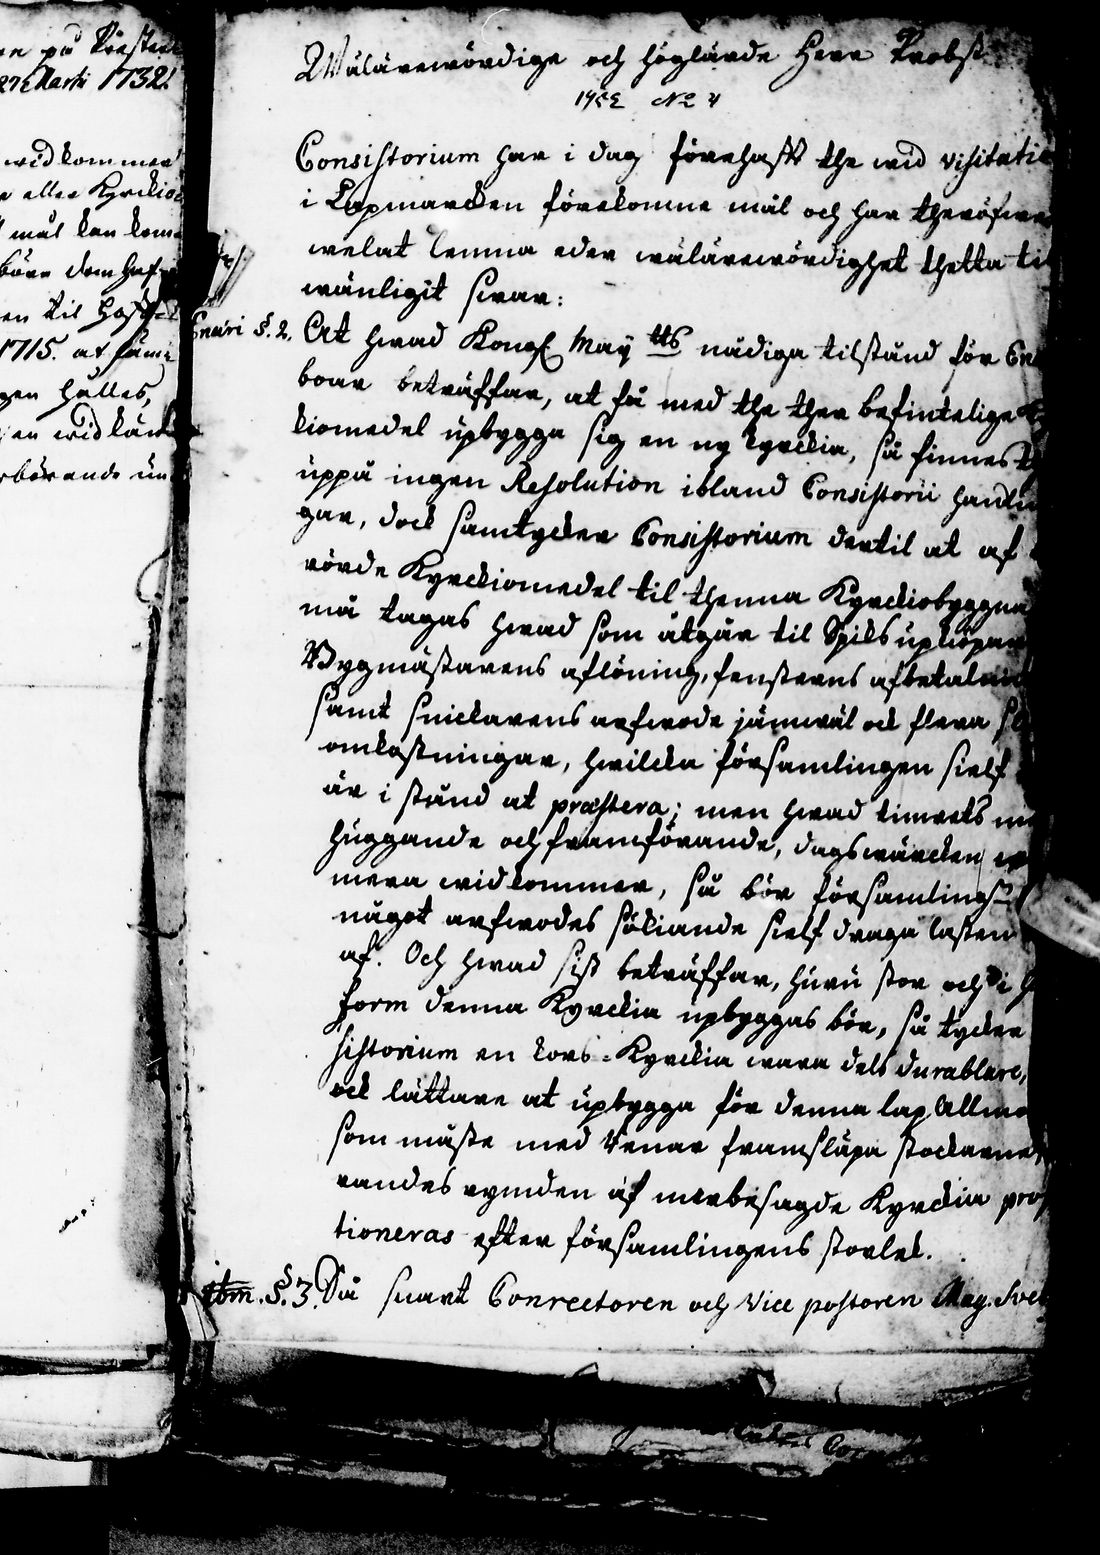 en på Prästen
27 Martii 1732.
widkommer
eller Kyrckio
mål kan kom
böra dem haf
en til
1715. at
gen hålles,
en widkän
börande
Wälärewördige och höglärde Herr Probst
No 4
Consistorium har i dag förehaft the wid visitatio
i Lapmarcken förekomne mål och har theröfwer
welat lemna eder wälärewördighet thetta til
wänligit swar:
Enari §. 2. At hwad Kongl May tts nådiga tilstånd för En
boar beträffar, at få med the ther befintelige
kiomedel upbygga sig en ny kyrckia, så finnes
uppå ingen Resolution ibland Consistorii handlin
gar, dock samtycker Consistorium dertil at af
rörde Kyrckiomedel til thenna Kyrckiobyggna
må tagas hwad som åtgår til Spiks upköpan
Bygmästarens aflöning, fensterns afbetalning
samt snickarens arfwode jämwäl ock flera
omkostningar, hwilcka församlingen sielf
är i stånd at præstera; men hwad timrets
huggande och framförande, dagswärcken
mera widkommer, så bör församlingen
något arfwodes sökiande sielf draga lasten
af. Och hwad sist beträffar, huru stor och i
form denna Kyrckia upbyggas bör, så tycker
sistorium en kors-Kyrckia wara dels durablare,
ock lättare at upbygga för denna lap Allmo
som måste med Renar framsläpa stockarne
randes rymden af merbesagde Kyrckia pro
tioneras efter församlingens storlek.
ibm. §. 3. Så snart Conrectoren och Vice pastoren Mag.